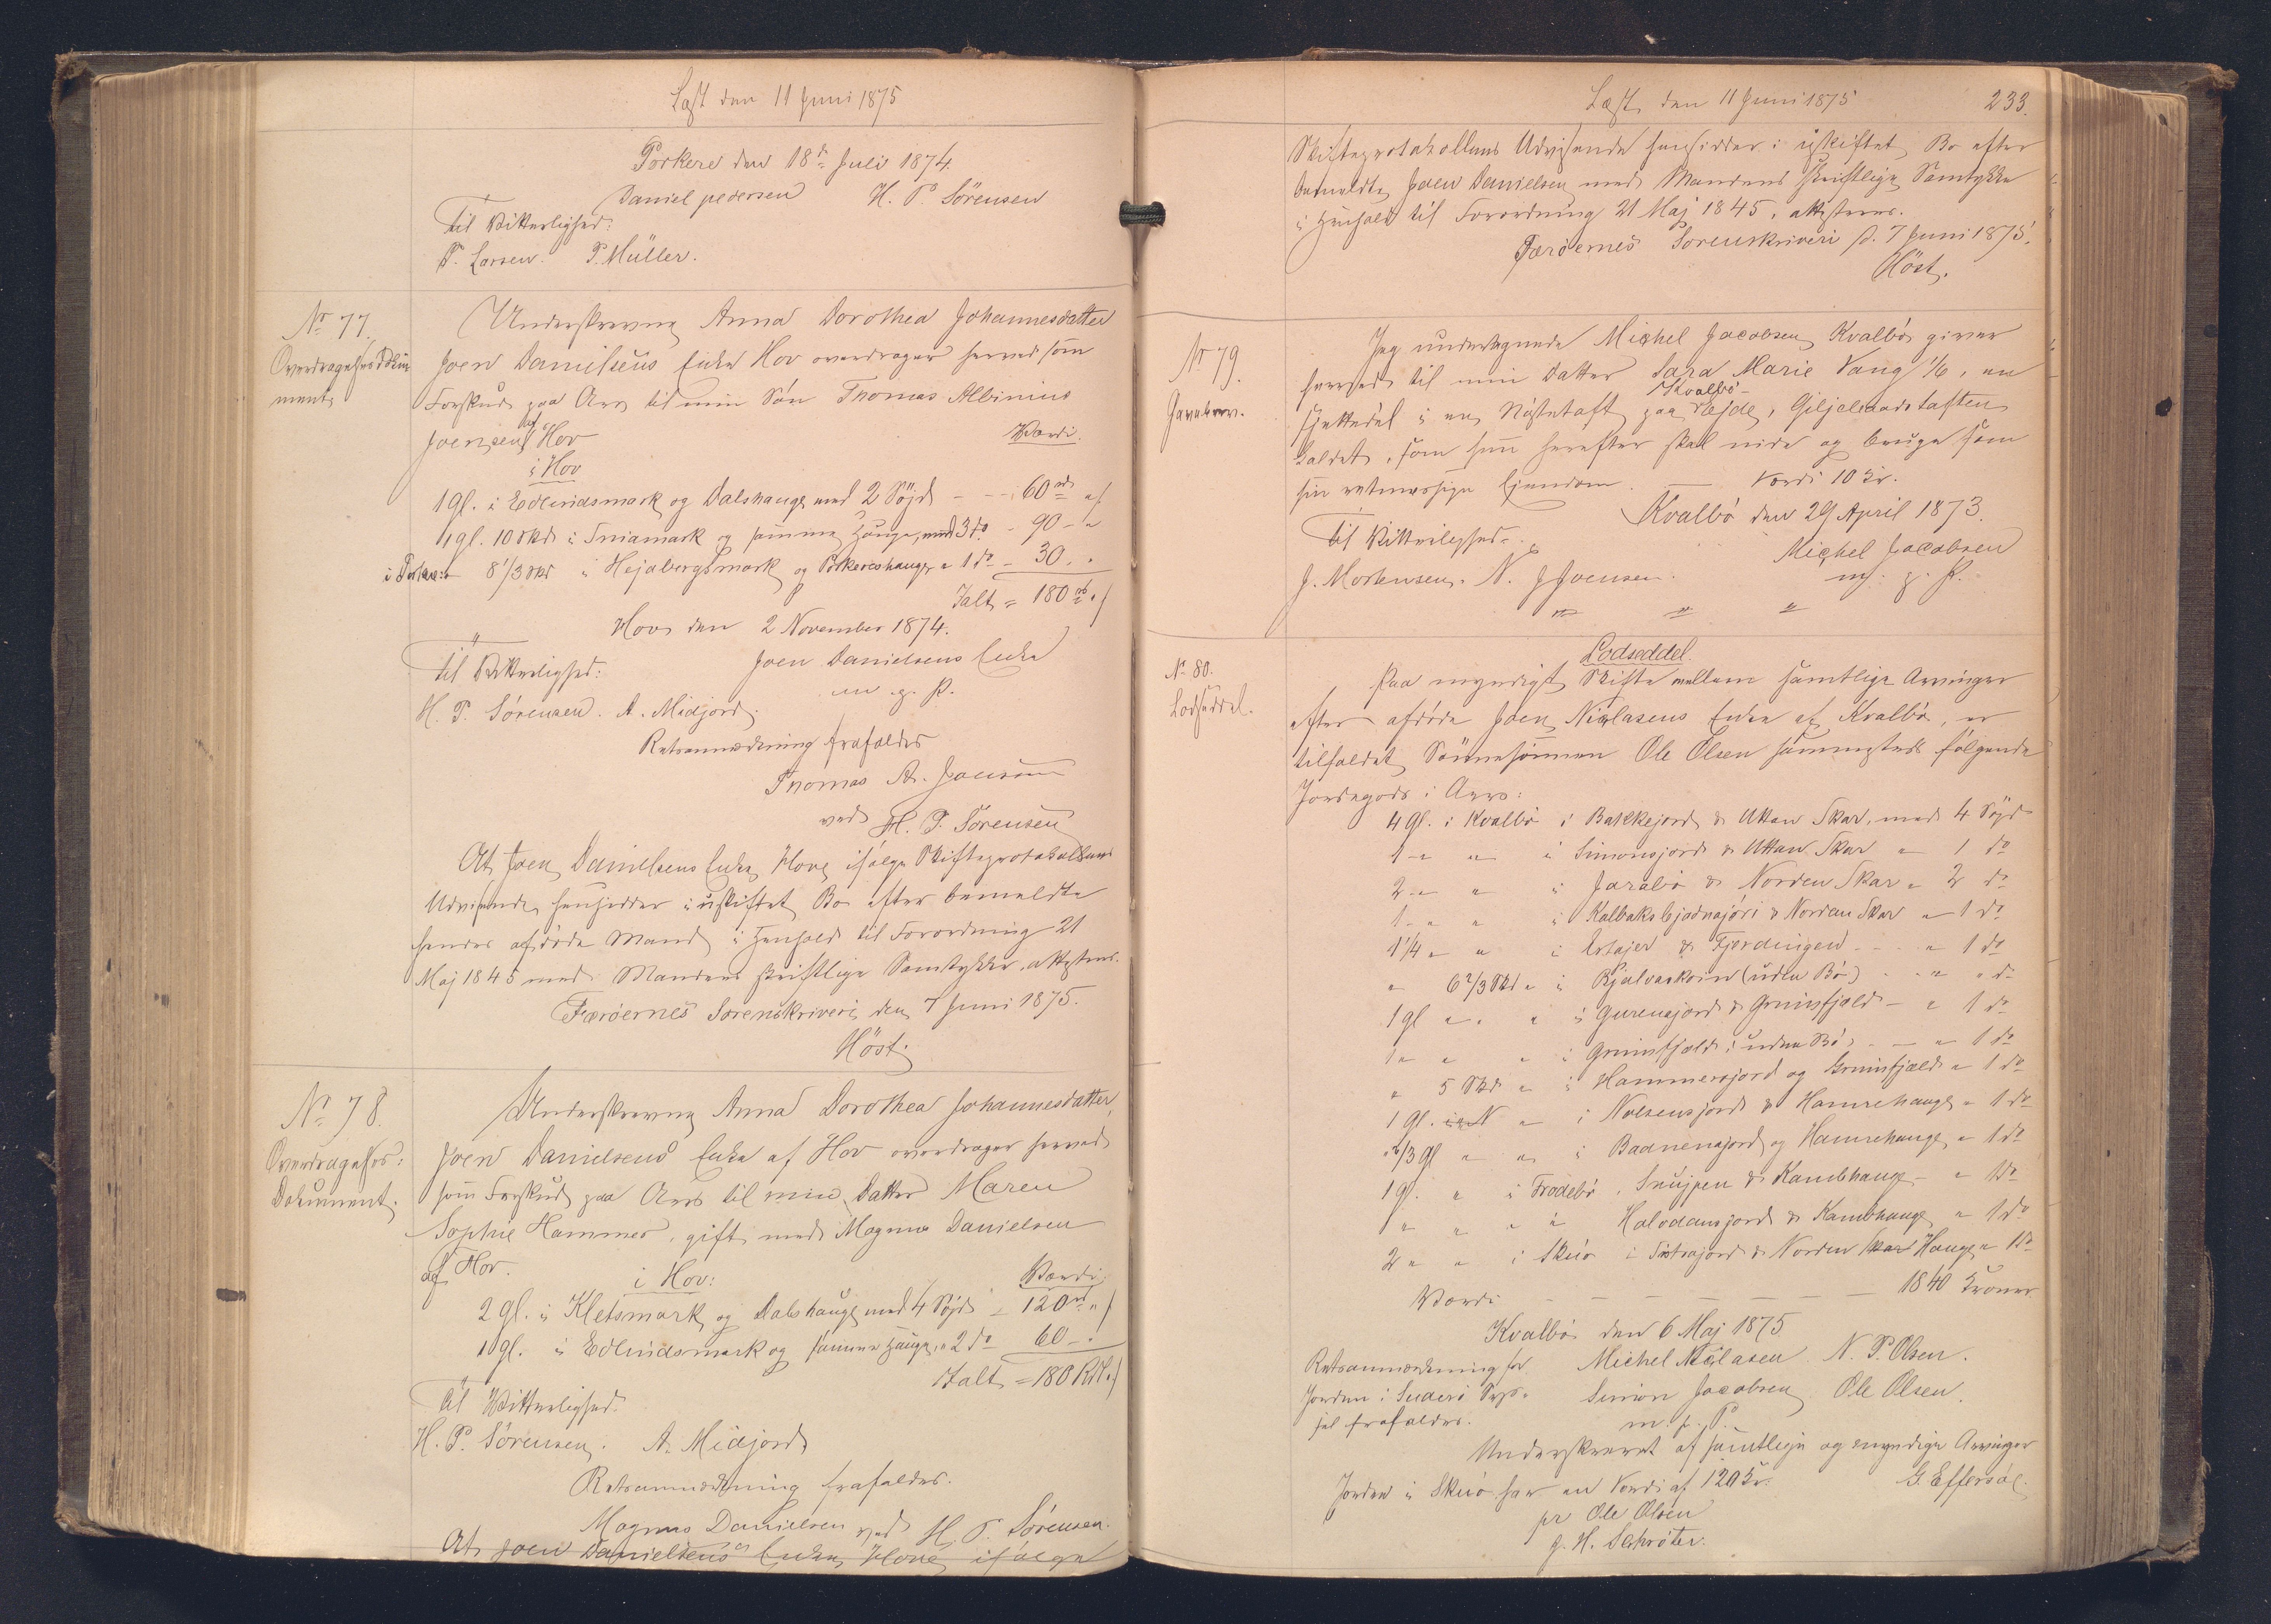 Læst den 11 Juni 1875
Porkere den 18de Juli 1874.
Daniel pedersen H. P. Sörensen
Til Vitterlighed:
P. Larsen. P. Müller.
No 77.
Overdragelsesdoku
ment
Underskrevne Anna Dorothea Johannesdatter
Joen Danielsens Enke Hov overdrager herved som
Forskud paa Arv til min Sön Thomas Albinius
Joensen af Hov
Værdi.
i Hov
1 gl. i Edlendsmark og Dalshauge med 2 Söjd - - 60 rd "
1 gl. 10 Skd i Sniamark og samme Hauge, med 3 do - 90 - "
i Porkere: 8 1/3 Skd i Hejdabergsmark og Porkereshauge " 1 do - 30 . "
Ialt = 180 rd "
Hov den 2 November 1874.
Til Vitterlighed: Joen Danielsens Enke
m. f. P.
H. P. Sörensen. A. Midjord.
Retsanmærkning frafaldes
Thomas A. Joensen
ved H. P. Sörensen
At Joen Danielsens Enke, Hove ifølge Skifteprotokollens
Udvisende hensidder i uskiftet Bo efter bemeldte
hendes afdøde Mand i Henhold til Forordning 21
Maj 1845 med Mandens skriftlige Samtykke, attesteres.
Færöernes Sorenskriveri, den 7 Juni 1875.
Höst.
No 78.
Overdragelses:
Dokument.
Underskrevne Anna Dorothea Johannesdatter,
Joen Danielsens Enke af Hov overdrager herved
som Forskud paa Arv til min Datter Maren
Sophie Hammer, gift med Magnus Danielsen
af Hov.
i Hov: Værdi
2 gl. i Kletsmark og Dalshauge med 4 Söjd - 120 rd "
1 gl. i Edlendsmark og samme Hauge, " 2 do 60 - "
Ialt = 180 Rd "
Til Vitterlighed.
H. P. Sörensen. A. Midjord
Retsanmærkning frafaldes.
Magnus Danielsen ved H. P. Sörensen.
At Joen Danielsens Enke, Hove ifølge
Læst den 11 Juni 1875 233.
Skifteprotokollens Udvisende hensidder i uskiftet Bo efter
bemeldte Joen Danielsen med Mandens skriftlige Samtykke
i Henhold til Forordning 21 Maj 1845, attesteres.
Færöernes Sorenskriveri d. 7 Juni 1875.
Höst.
No 79.
Gavebrev.
Jeg undertegnede Michel Jacobsen, Kvalbö giver
herved til min Datter Sara Marie Vang 1/6, en
Kvalbö
sjettedel i en Nöstetoft paa Ejde,
kaldet, som hun herefter skal nide og bruge som
sin retmæssige Ejendom. — Værdi 10 Kr.
Kvalbö den 29 April 1873.
Til Vitterlighed: Michel Jacobsen
J. Mortensen. N. J. Joensen. m. f. P.
" " "
No 80.
Lodseddel.
Lodseddel.
Paa myndigt Skifte mellem samtlige Arvinger
efter afdöde Joen Niclasens Enke af Kvalbö, er
tilfaldet Sönnesönnen Ole Olsen sammesteds følgende
Jordegods i Arv:
4 gl. i Kvalbö i Bakkejord & Uttan Skar, med 4 Söjd
1 - " " i Simonsjord & Uttan Skar " 1 do
2 - " " i Jarabö & Norden Skar " 2 do
1 - " " i Kalbaks & Nordan Skar " 1 do
1 1/4 " " i & Fjordingen - - - " 1 do
" 6 2/3 Skd " i (uden Bö) - - " " do
1 gl " " " i Gurensjord & Grimsfjeld - " 1 do
1 " " " i Grimsfjeld (uden Bö) - - " 1 do
" 5 Skd " i Hammersjord og Grimsfjeld " 1 do
1 gl. " " i Nolsensjord & Hamrehauge " 1 do
2/3 gl " " i Badnensjord og Hamrehauge " 1 do
1 gl. " i Frodebö, & Kambhauge - " 1 do
1 " " " " Halvdansjord & Kambhauge " 1 do
2 " " i Skuö i & Norden Hauge " 1 do
Værdi — — — — — — 1840 Kroner
Kvalbö den 6 Maj 1875
Retsanmærkning for Michel Niclasen N. P. Olsen.
Jorden i Suderö Sys= Simon Jacobsen Ole Olsen.
sel frafaldes. m. f. P.
Underskrevet af samtlige og myndige Arvinger
Jorden i Skuö har en Værdi af 120 Kr. G. Effersöe.
pr Ole Olsen
J. H. Schröter.